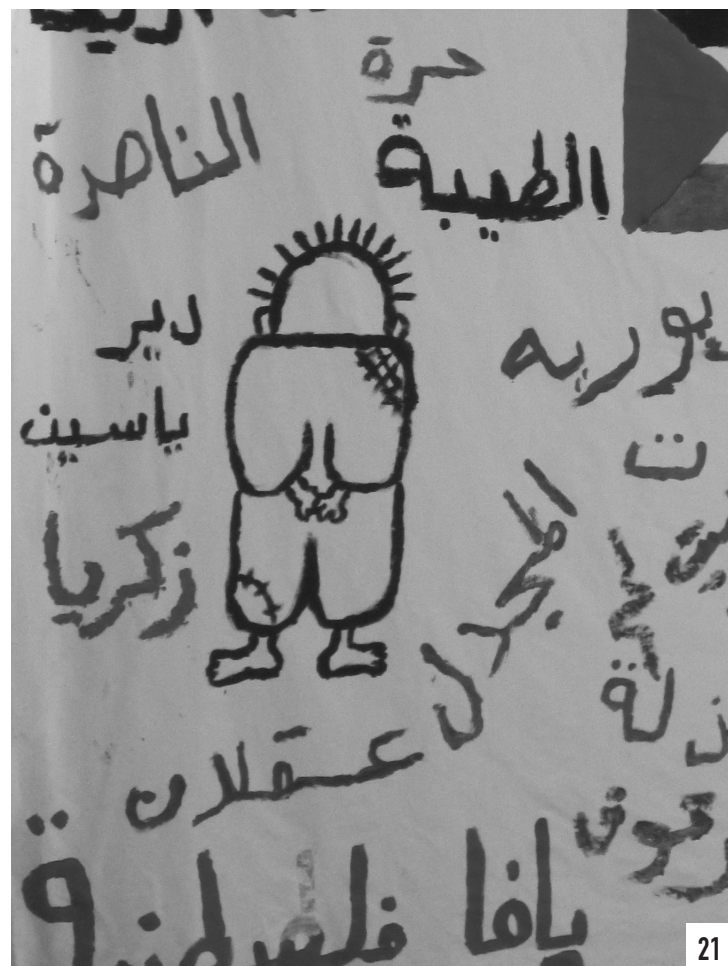 حرة
الناصرة
الطيبة
دير
ياسين
يوريه
ت
زكريا
المجدل
عقلان
ذلة
يافا فلسطينية
21